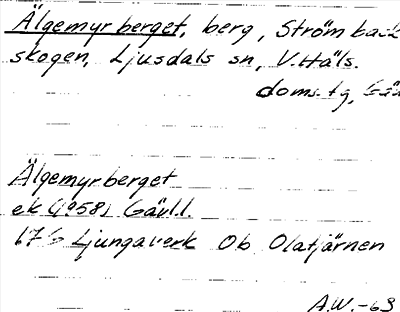 Älgemyrberget, berg, Strömback
skogen, Ljusdals sn, V. Häls.
doms. tg, Gäv
Älgemyrberget
ek (1958) Gävl.l.
17 G Ljungaverk Ob Olatjärnen
A.W.-63